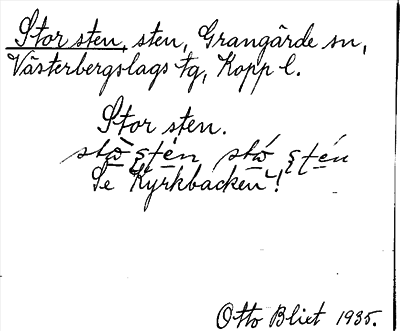 Stor sten, sten, Grangärde sn,
Västerbergslags tg, Kopp l.
Stor sten.
Se "Kyrkbacken"!
Otto Blixt 1935.